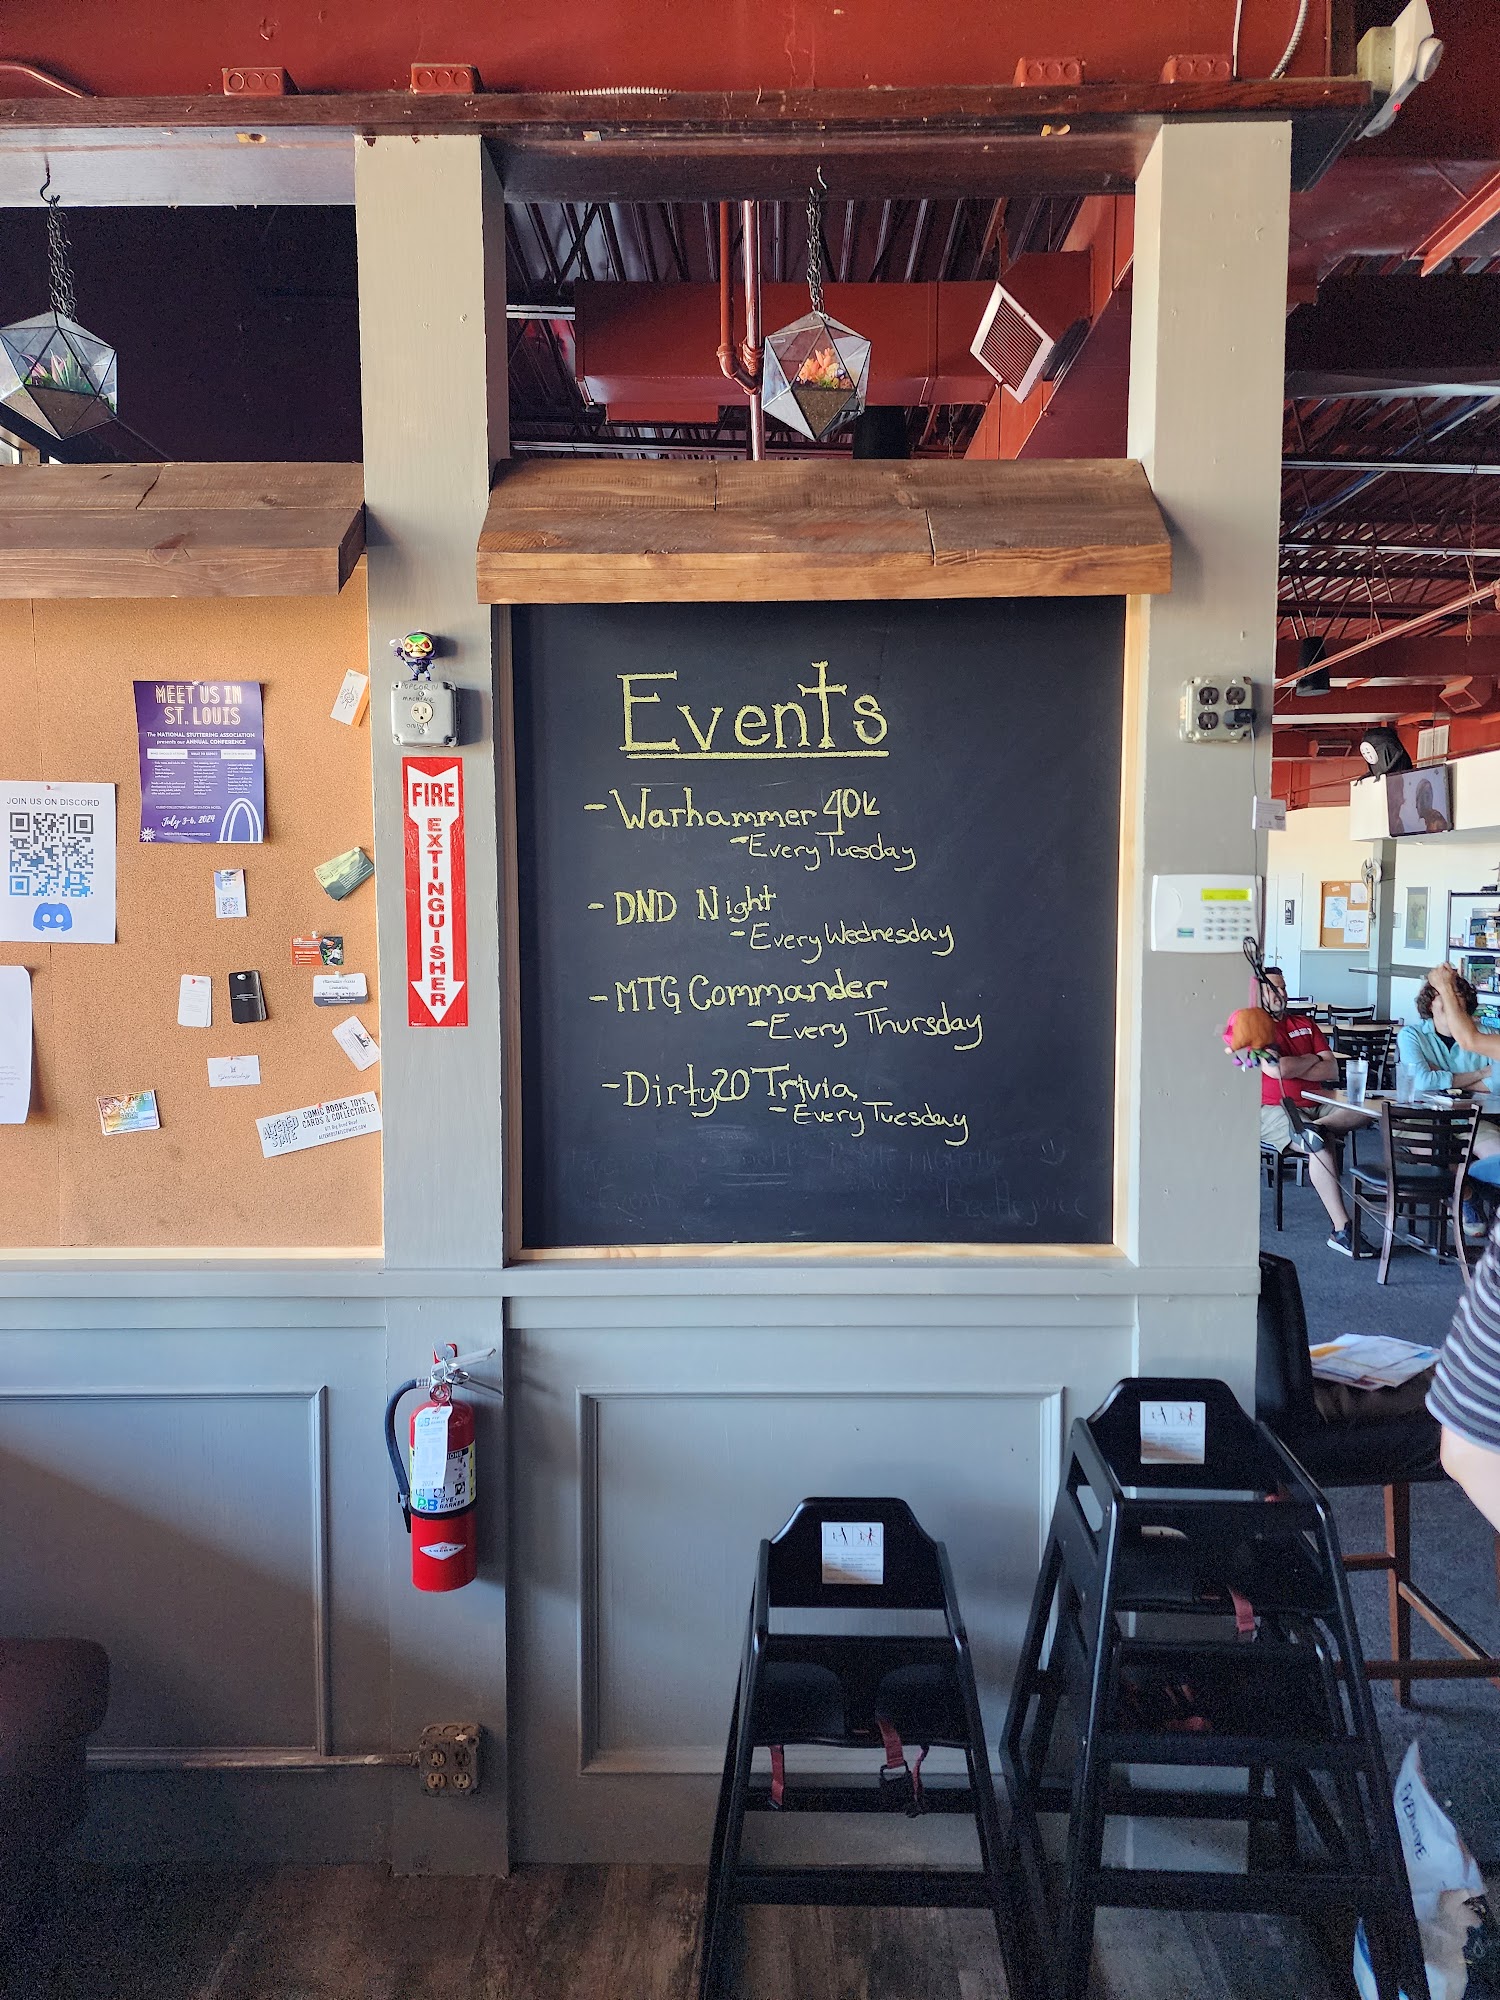 MEET US IN
ST. LOUIS
The NATIONAL STUTTERING ASSOCIATION
presents our ANNUAL CONFERENCE
July 3-6, 2024
JOIN US ON DISCORD
ALTERED
STATE
COMIC BOOKS, TOYS,
CARDS & COLLECTIBLES
POPCORN
MACHINE
ONLY
FIRE
EXTINGUISHER
Events
- Warhammer 40k
- Every Tuesday
- DND Night
- Every Wednesday
- MTG Commander
- Every Thursday
- Dirty20 Trivia
- Every Tuesday
Event
Beetlejuice
2024
PYE
BARKER
AMEREX